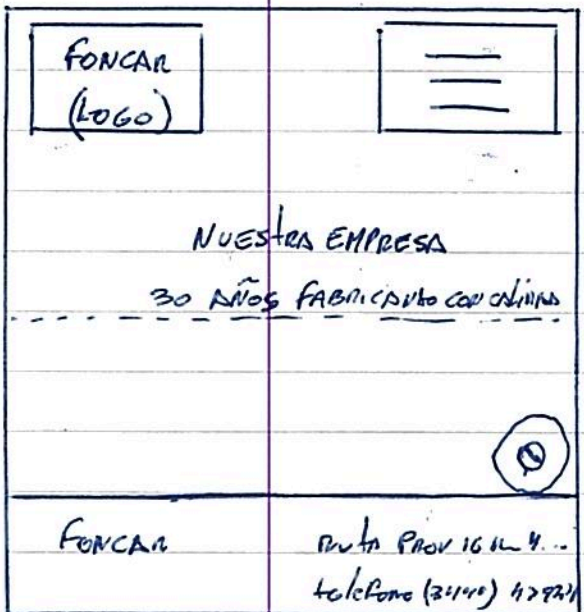 FONCAR
(LOGO)
NUESTRA EMPRESA
30 AÑOS FABRICANDO CON CALIDAD
FONCAR
RUTA PROV 16 4...
telefono